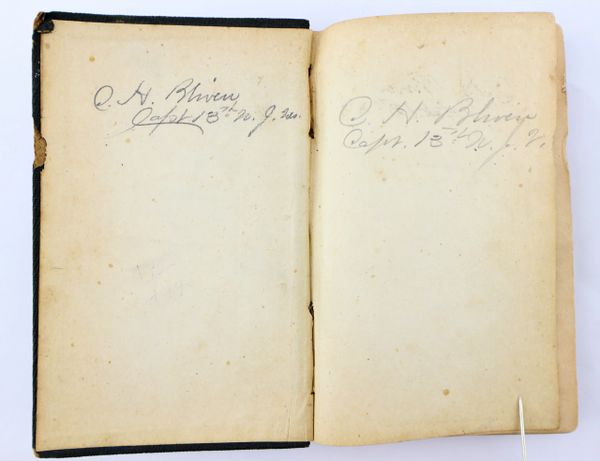 C. H. Bliven
Capt 13th N. J. Vols.
C. H. Bliven
Capt. 13th N. J. V.